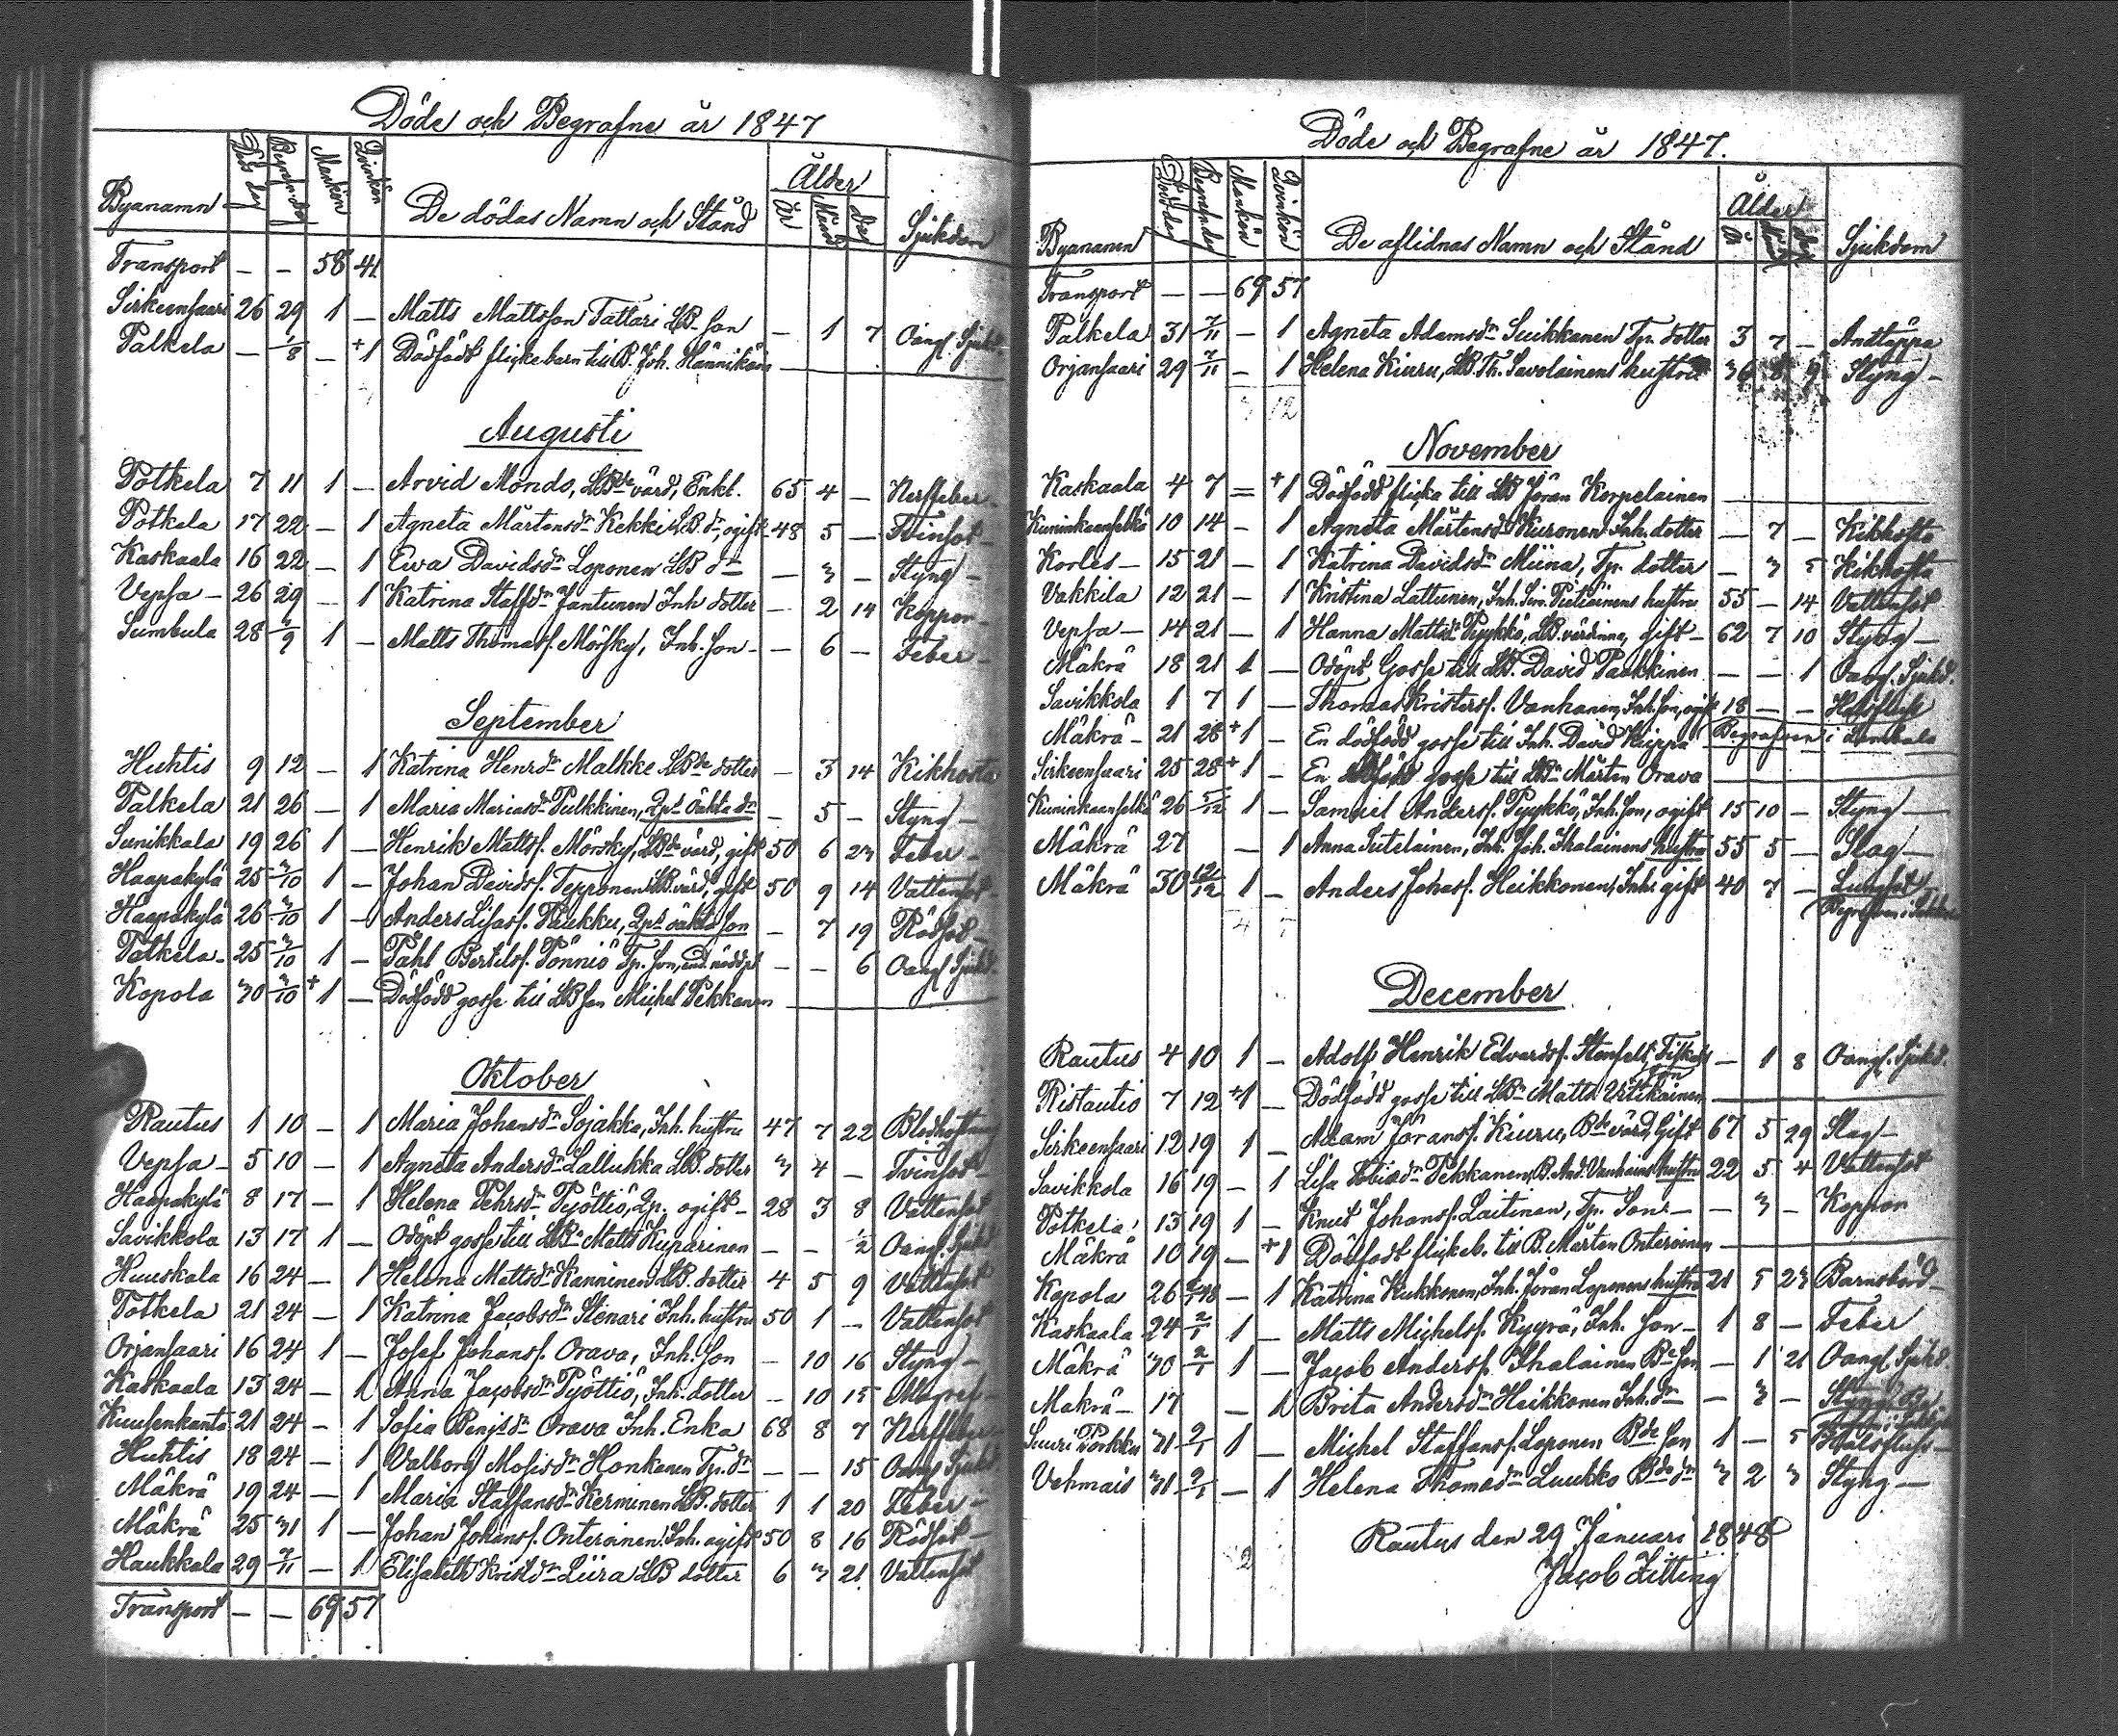 Döde och Begrafne år 1847
Byanamn Döds dag Begrafn. dag Mankön Qvinkön De dödas Namn och Stånd Ålder År Månad Dag Sjukdom
Transport — — 58 41
Sirkeensaari 26 29 1 — Matts Mattsson Tattari LB. son — 1 7 Oangf. Sjukd.
Palkela — 1/8 — +1 Dödfödt flickebarn till B. Joh. Hännikäin
Augusti
Potkela 7 11 1 — Arvid Mondo, LBde värd, Enkl. 65 4 — Nerffeber
Potkela 17 22 — 1 Agneta Mårtensdr Kekki LB. dr, ogift 48 5 — Tvinsot
Kaskaala 16 22 — 1 Ewa Davidsdr Loponen LB dr — 3 — Styng
Vepsa 26 29 — 1 Katrina Staffdr Jantunen Inh dotter — 2 14 Koppor
Sumbula 28 5/9 1 — Matts Thomass. Mörsky, Inh. son — 6 — Feber
September
Huhtis 9 12 — 1 Katrina Henrdr Malkke LBde dotter — 3 14 Kikhosta
Palkela 21 26 — 1 Maria Mariasdr Pulkkinen, Qps oäkta dr — 5 — Styng
Sunikkala 19 26 1 — Henrik Matts. Mörsky, LBde värd, gift 50 6 23 Feber
Haapakylä 25 3/10 1 — Johan Davids. Tepponen LB. värd, gift 50 9 14 Vattensot
Haapakylä 26 3/10 1 — Anders Lisas. Puukku, Qps oäkta son — 7 19 Rödsot
Palkela 25 3/10 1 — Påhl Bertils. Pönniö Tp. son, end. nöddpt — — 6 Oangf. Sjukd.
Kopola 30 3/10 +1 — Dödfödd gosse till LB son Michel Pekkanen
Oktober
Rautus 1 10 — 1 Maria Johansdr Sojakka, Inh. hustru 47 7 22 Blodhostning
Vepsa 5 10 — 1 Agneta Andersdr Lallukka LB. dotter 3 4 — Tvinsot
Haapakylä 8 17 — 1 Helena Pehrsdr Pyöttiö, Qp. ogift 28 3 8 Vattensot
Savikkola 13 17 1 — Odöpt gosse till LBn Matts Kuparinen — — 2 Oangf. Sjukd
Huuskala 16 24 — 1 Helena Mattsdr Kanninen LB. dotter 4 5 9 Vattensot
Potkela 21 24 — 1 Katrina Jacobsdr Stenari Inh. hustru 50 1 — Vattensot
Orjansaari 16 24 1 — Josef Johans. Orava, Inh. son — 10 16 Styng
Kaskaala 13 24 — 1 Anna Jacobsdr Pyöttiö, Inh. dotter — 10 15 Magref
Kuusenkanta 21 24 — 1 Sofia Bengtsdr Orava Inh. Enka 68 8 7 Nerffeber
Huhtis 18 24 — 1 Walborg Mosisdr Honkanen Tp. dr — — 15 Oangf Sjukd
Mäkrä 19 24 — 1 Maria Staffansdr Kerminen LB. dotter 1 1 20 Feber
Mäkrä 25 31 1 — Johan Johans. Onteroinen Inh. ogift 50 8 16 Rödsot
Haukkala 29 7/11 — 1 Elisabeth Kristdr Liira LB dotter 6 3 21 Vattensot
Transport — — 69 57
Döde och Begrafne år 1847.
Byanamn Dödsdag Begrafn.dag Mankön Qvinkön De aflidnas Namn och Stånd Ålder År Månad Dag Sjukdom
Transport — — 69 57
Palkela 31 7/11 — 1 Agneta Adamsdr Suikkanen Tp. dotter 3 7 — Andtäppa
Orjansaari 29 7/11 — 1 Helena Kiuru, LB. Th. Savolainens hustru 36 8 9 Styng
November
Kaskaala 4 7 — +1 Dödfödd flicka till LB Jöran Korpelainen
Kuninkaanselkä 10 14 — 1 Agneta Mårtensdr Kuronen Inh. dotter — 7 — Kikhosta
Korles 15 21 — 1 Katrina Davidsdr Miina, Tp. dotter — 3 5 Kikhosta
Vakkila 12 21 — 1 Kristina Lattunen, Inh. Sim. Pietiäinens hustru 55 — 14 Vattensot
Vepsa 14 21 — 1 Hanna Mattsdr Pyykkö, LB. värdinna, gift 62 7 10 Styng
Mäkrä 18 21 1 — Odöpt Gosse till LB. David Paukkinen — — 1 Oangf. Sjukd.
Savikkola 1 7 1 — Thomas Kristers. Vanhanen, Inh. son, ogift 18 — — Halsfluss
Mäkrä 21 28 +1 — En dödfödd gosse till Inh. David Huppa Begrafven i
Sirkeensaari 25 28 +1 — En dödfödd gosse till LBn Mårten Orava
Kuninkaanselkä 26 5/12 1 — Samuel Anders. Pyykkö, Inh. son, ogift 15 10 — Styng
Mäkrä 27 — 1 Anna Sutelainen, Inh. Joh. Ihalainens hustru 55 5 — Slag
Mäkrä 30 12/12 1 — Anders Johas. Heikkonen, Inh. gift 40 7 — Lungsot
Begrafven i
December
Rautus 4 10 1 — Adolf Henrik Edvards. Stenfelt, Fiskals son — 1 8 Oangf. Sjukd.
Ristautio 7 12 +1 — Dödfödd gosse till LBn Matts Utikainen
Sirkeensaari 12 19 1 — Adam Jörans. Kiuru, Bde värd, Gift 67 5 29 Slag
Savikkola 16 19 — 1 Lisa Tobiasdr Pekkanen, B. And. Vanhains hustru 22 5 4 Vattensot
Potkela 13 19 1 — Knut Johans. Laitinen, Tp. Son — 3 — Koppor
Mäkrä 10 19 — +1 Dödfödt flickeb. till B. Mårten Onteroinen
Kopola 26 2/1 48 — 1 Katrina Kukkonen, Inh. Jöran Loponens hustru 21 5 23 Barnsbörd
Kaskaala 24 2/1 1 — Matts Michels. Kyyrä, Inh. son 1 8 — Feber
Mäkrä 30 2/1 1 — Jacob Anders. Ihalainen Bde son — 1 21 Oangf. Sjukd.
Mäkrä 17 — 1 Brita Andersdr Heikkonen Inh. dr — 3 — Styng
Suuri Porkku 31 2/1 1 — Michel Staffans. Loponen Bde son 1 — 5 Halsfluss
Vehmais 31 2/1 — 1 Helena Thomasdr Luukko Bde dr 3 2 3 Styng
Rautus den 29 Januari 1848
Jacob Zitting